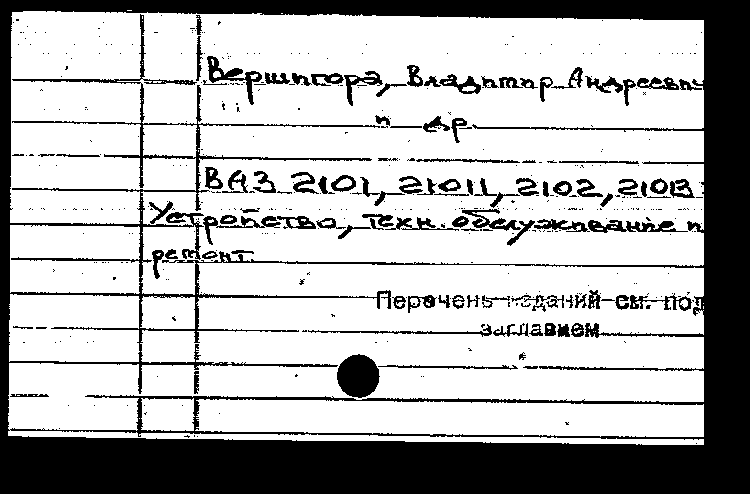 Вершигора, Владимир Андреевич
и др.
ВАЗ 2101, 21011, 2102, 21013:
Устройство, техн. обслуживание и
ремонт.
Перечень изданий см. под
заглавием